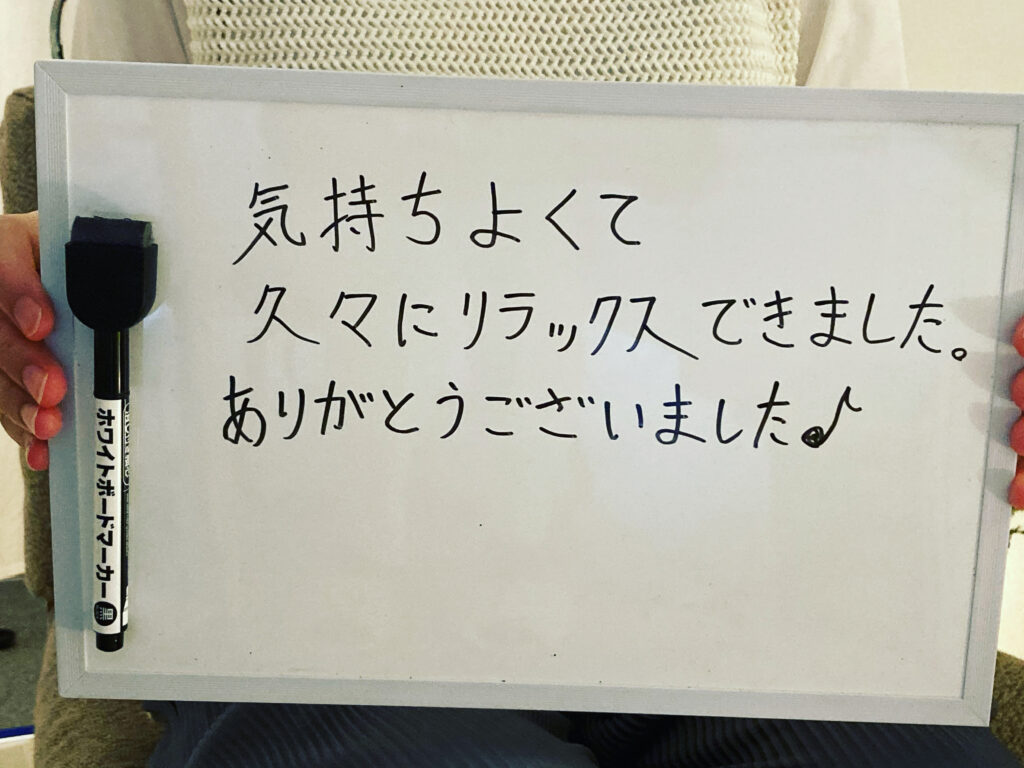 気持ちよくて
久々にリラックスできました。
ありがとうございました♪
ホワイトボードマーカー 黒